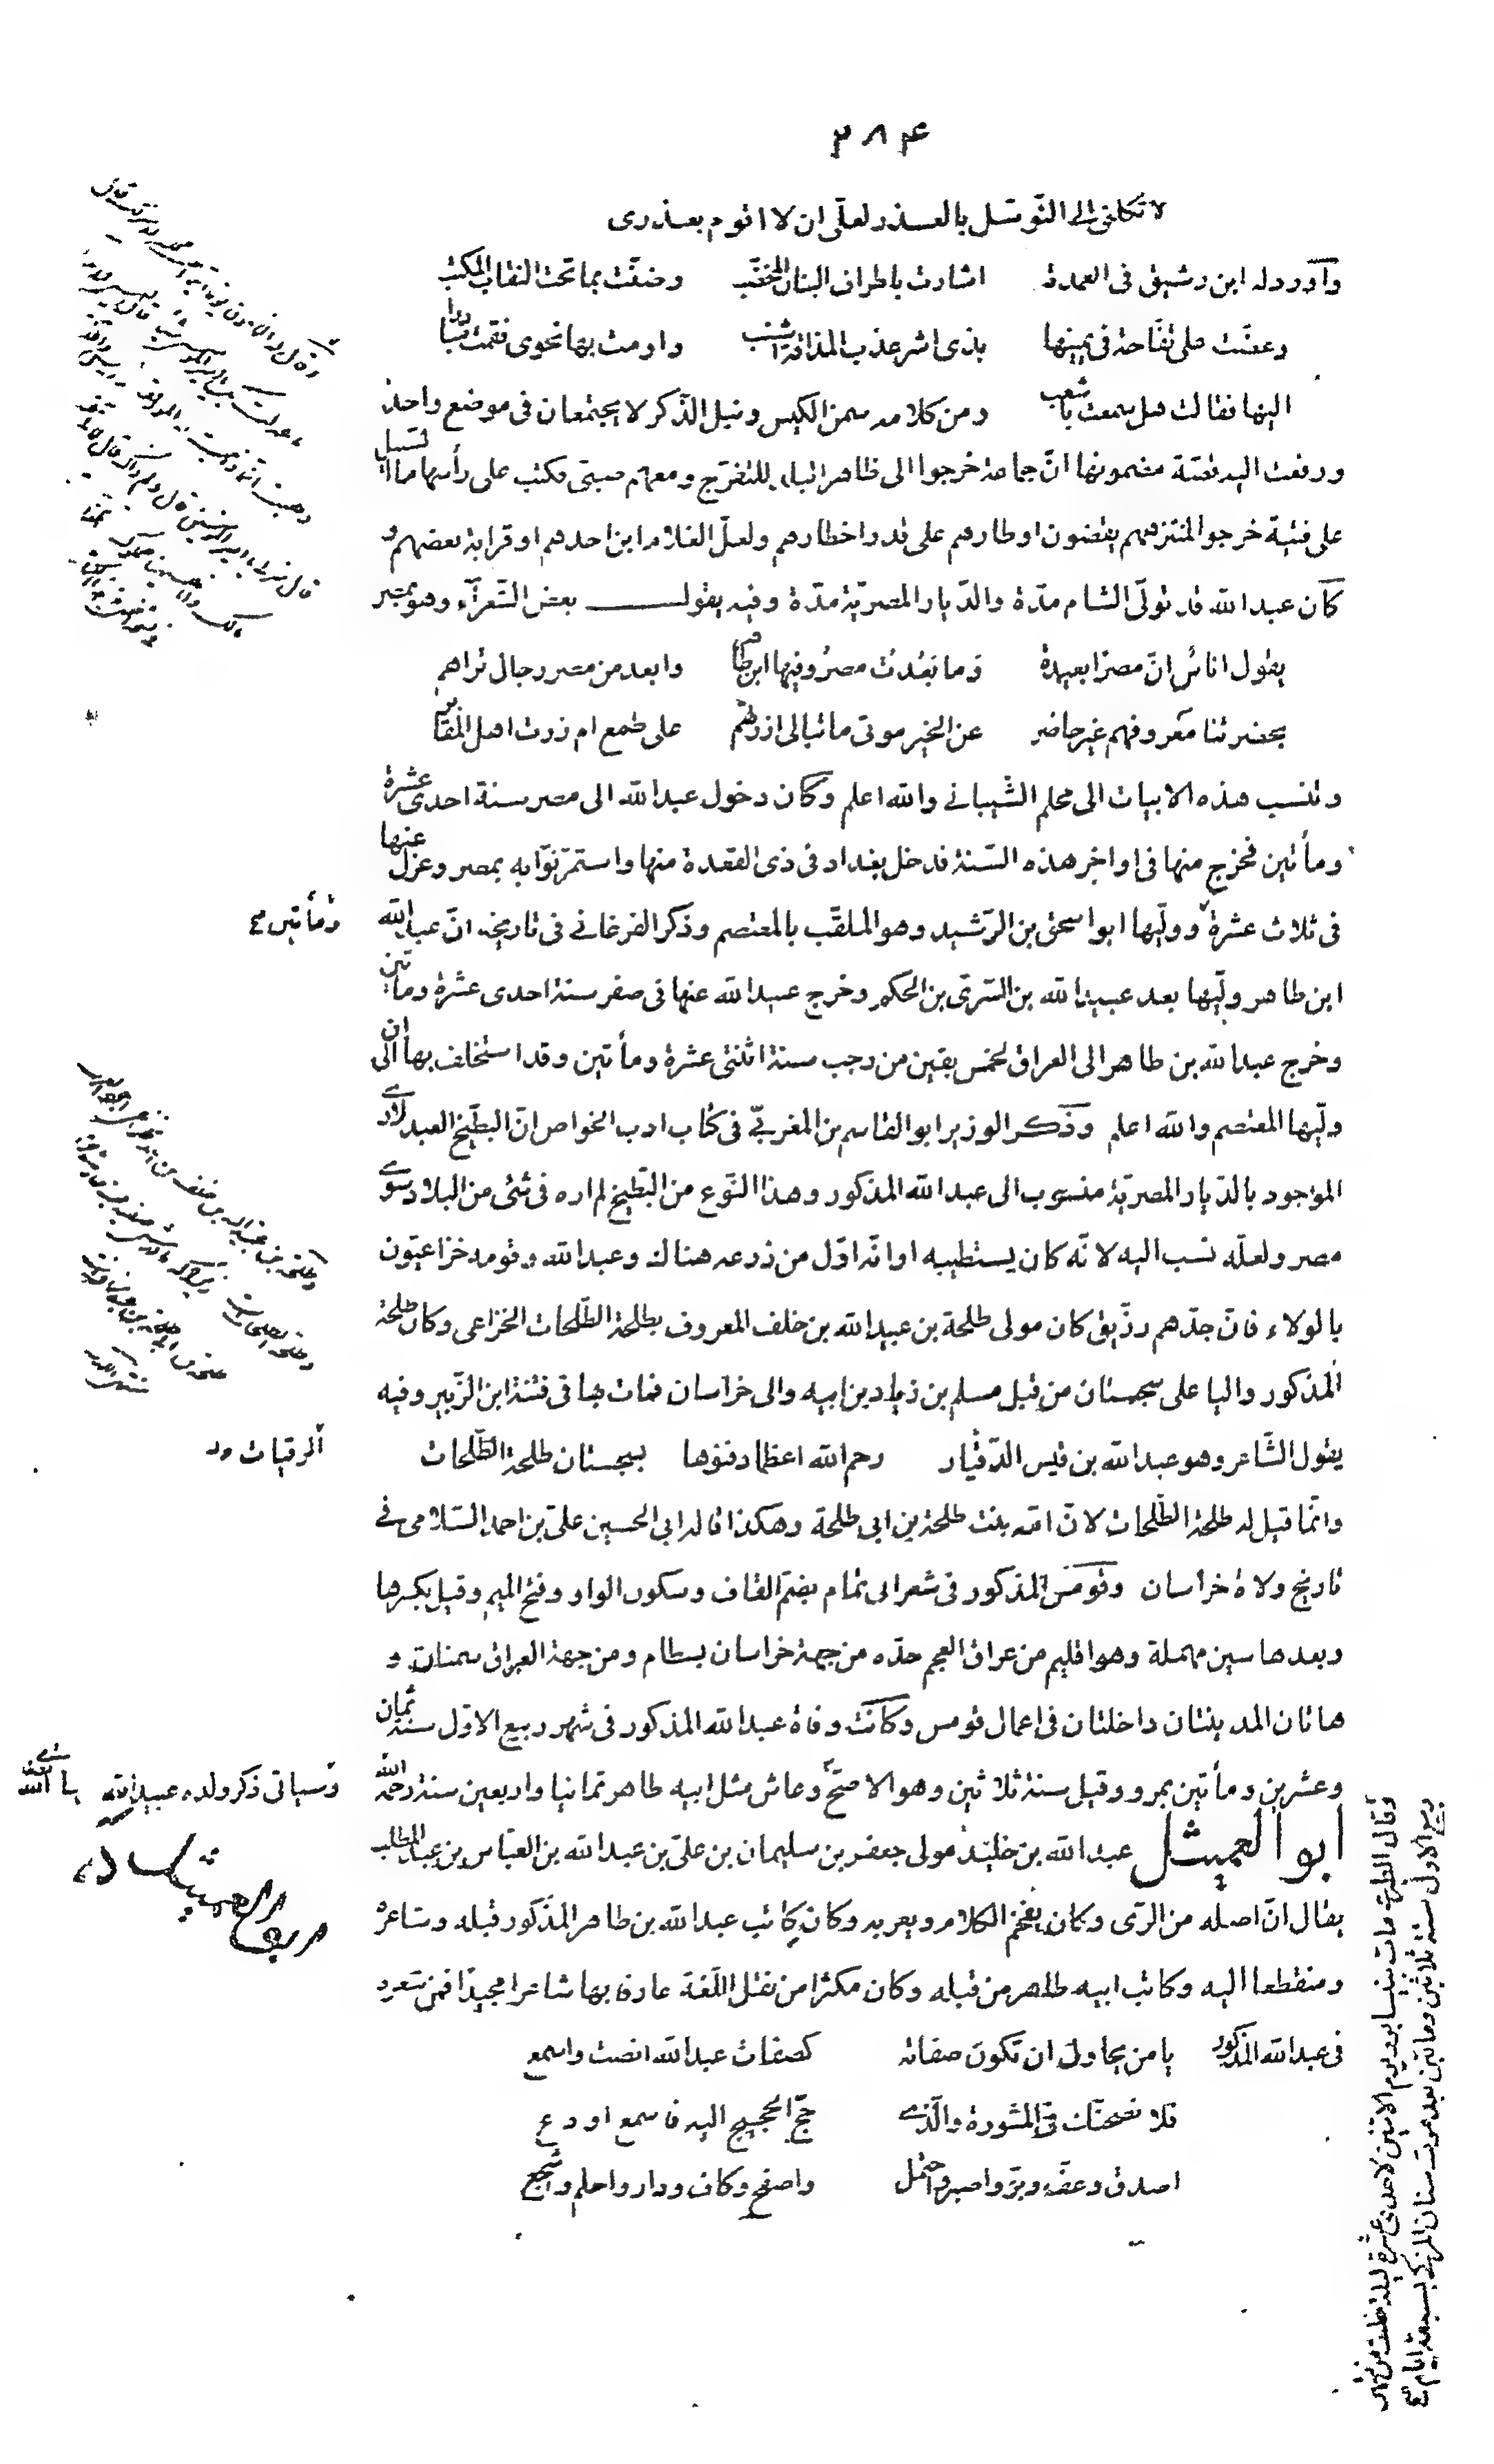 ٢٨۴
لا تكلنى الى التوسّل بالعذر لعلّى ان لا اقوم بعذرى
وآورد له ابن رشيق فى العمدة اشارت باطراف البنان المخضّب وضنّت بما تحت النقاب المكتّب
وعضّت على تفّاحة فى يمينها بذى اشر عذب المذاقة اشنب واومت بها نحوى فقمت مبادرا
اليها فقالت هل سمعت باشعب ومن كلامه سمن الكيس ونبل الذّكر لا يجتمعان فى موضع واحد
ورفعت اليه قصّة مضمونها انّ جماعة خرجوا الى ظاهر البلد للتفرّج ومعهم صبىّ فكتب على رأسها ما السبيل
على فتية خرجوا لمتنزههم يقضون اوطارهم على قدر اخطارهم ولعلّ الغلام ابن احدهم او قرابة بعضهم و
كان عبد الله قد تولّى الشام مدّة والدّيار المصريّة مدّة وفيه يقول بعض الشّعرآء وهو بمصر
يقول اناسٌ انّ مصرًا بعيدة وَما بَعُدَت مصرُ وفيها ابن طاهر وابعد من مصر رجال تراهم
بحضرتنا معروفهم غير حاضر عن الخير موتى ما تبالى ازرتهم على طمع ام زرت اهل المقابر
وتنسب هذه الابيات الى محلم الشّيبانے والله اعلم وكان دخول عبد الله الى مصر سنة احدى عشرة
ومأتين فخرج منها فى اواخر هذه السّنة فدخل بغداد فى ذى القعدة منها واستمرّ نوّابه بمصر وعزل عنها
فى ثلاث عشرة وولّيها ابو اسحق بن الرّشيد وهو الملقّب بالمعتصم وذكر الفرغانے فى تاريخه انّ عبد الله
ومأتين
ابن طاهر ولّيها بعد عبيد الله بن السّرىّ بن الحكم وخرج عبيد الله عنها فى صفر سنة احدى عشرة ومأتين
وخرج عبد الله بن طاهر الى العراق لخمس بقين من رجب سنة اثنتى عشرة ومأتين وقد استخلف بها الى ان
ولّيها المعتصم والله اعلم وذكر الوزير ابو القاسم بن المغربىّ فى كتاب ادب الخواص انّ البطّيخ العبدلاوے
الموجود بالدّيار المصريّة منسوب الى عبد الله المذكور وهذا النّوع من البطّيخ لم اره فى شئ من البلاد سوے
مصر ولعلّه نسب اليه لانّه كان يستطيبه او انّه اوّل من زرعه هناك وعبد الله وقومه خزاعيّون
بالولاء فانّ جدّهم رزّيق كان مولى طلحة بن عبيد الله بن خلف المعروف بطلحة الطّلحات الخزاعى وكان طلحة
المذكور واليا على سجستان من قبل مسلم بن زياد بن ابيه والى خراسان فمات بها فى فتنة ابن الزّبير وفيه
يقول الشّاعر وهو عبد الله بن قيس الرّقيّات رحم الله اعظما دفنوها بسجستان طلحة الطّلحات
الرقيات
وانّما قيل له طلحة الطّلحات لانّ امّه بنت طلحة بن ابى طلحة وهكذا قاله ابى الحسين علىّ بن احمد السّلامى فے
تاريخ ولاة خراسان وقومس المذكور فى شعر ابى تمام بضمّ القاف وسكون الواو وفتح الميم وقيل بكسرها
وبعدها سين مهملة وهو اقليم من عراق العجم حدّه من جهة خراسان بسطام ومن جهة العراق سمنان و
هاتان المدينتان داخلتان فى اعمال قومس وكانت وفاة عبد الله المذكور فى شهر ربيع الاوّل سنة ثمان
وعشرين ومأتين بمرو وقيل سنة ثلاثين وهو الاصحّ وعاش مثل ابيه طاهر ثمانيا واربعين سنة رحمه الله
وسياتى ذكر ولده عبيد الله
ابو العميثل عبد الله بن خليد مولى جعفر بن سليمان بن علىّ بن عبد الله بن العبّاس بن عبد المطّلب
يقال انّ اصله من الرّى وكان يفخم الكلام ويعربه وكان كاتب عبد الله بن طاهر المذكور قبله وشاعره
ومنقطعا اليه وكاتب ابيه طاهر من قبله وكان مكثرا من نقل اللّغة عارفا بها شاعرا مجيدًا فمن شعره
فى عبد الله المذكور يا من يحاول ان تكون صفاته كصفات عبد الله انصت واسمع
فلا نصحنّك فى المشورة والّذے حجّ الحجيج اليه فاسمع او دع
اصدق وعفّ وبرّ واصبر واحتمل واصفح وكاف ودار واحلم واشجع
وقال الطبرے مات بنيسابور يوم الاثنين لاحدى عشرة ليلة خلت من شهر
ربيع الاول سنة ثلاثين ومأتين بعد موت سنان التركى بسبعة ايام